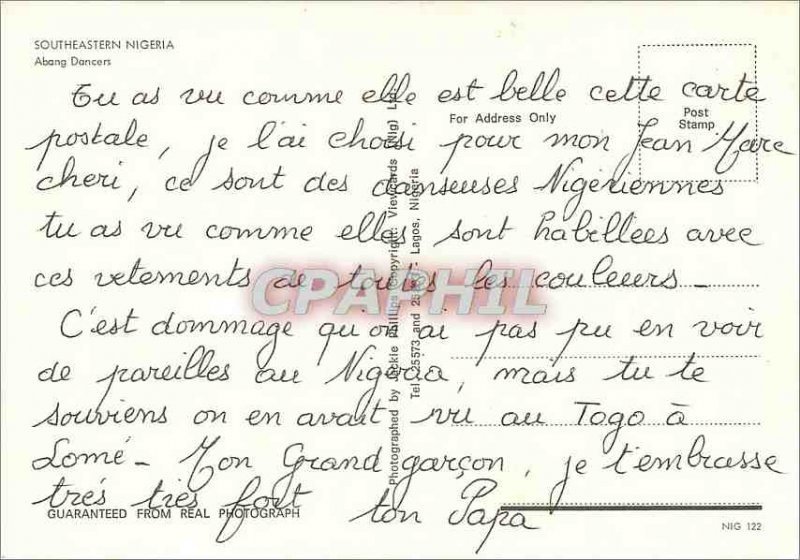 SOUTHEASTERN NIGERIA
Abang Dancers
Tu as vu comme elle est belle cette carte
For Address Only
Post
Stamp
postale, je l'ai choisi pour mon Jean Marc
cheri, ce sont des danseuses Nigériennes
tu as vu comme elles sont habillées avec
ces vetements de toutes les couleurs_
CPAPHIL
C'est dommage qu'on ai pas pu en voir
de pareilles au Nigéria, mais tu te
souviens on en avait vu au Togo à
Lomé_ Mon Grand garçon, je t'embrasse
trés trés fort ton Papa
GUARANTEED FROM REAL PHOTOGRAPH
NIG 122
Photographed by Jackie Phillips Copyright: Viewcards (Nig) Ltd.
Tel: 25573 and - Lagos, Nigeria